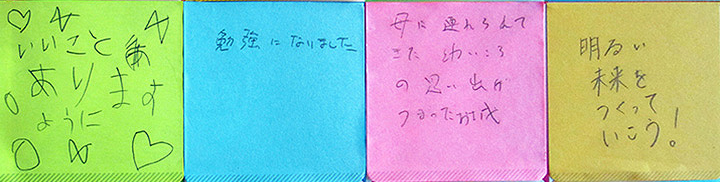 いいこと
あります
ように
勉強になりました
母に連れられて
きた
の思い出が
明るい
未来を
つくって
いこう!